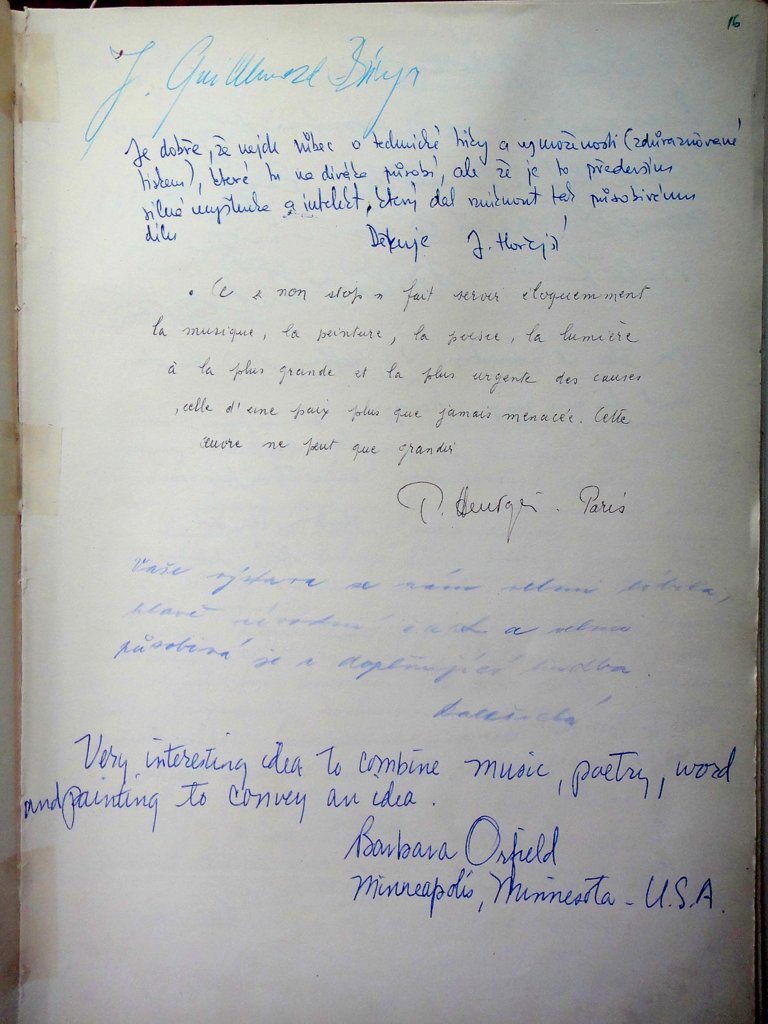 16
J.
Je dobře, že nejde vůbec o technické triky a vymoženosti (zdůrazňované
tiskem), které tu na diváka působí, ale že je to především
silná myšlenka a intelekt, který dal vzniknout tak působivému
dílu
Děkuje J. Hořejší
. Ce « non stop » fait servir éloquemment
la musique, la peinture, la poésie, la lumière
à la plus grande et la plus urgente des causes
, celle d'une paix plus que jamais menacée. Cette
œuvre ne peut que grandir
Paris
Vaše výstava se nám velmi líbila,
hlavě úvodní část a velmi
působivá je i doplňující hudba.
Very interesting idea to combine music, poetry, word
and painting to convey an idea.
Barbara Orfield
Minneapolis, Minnesota - U.S.A.